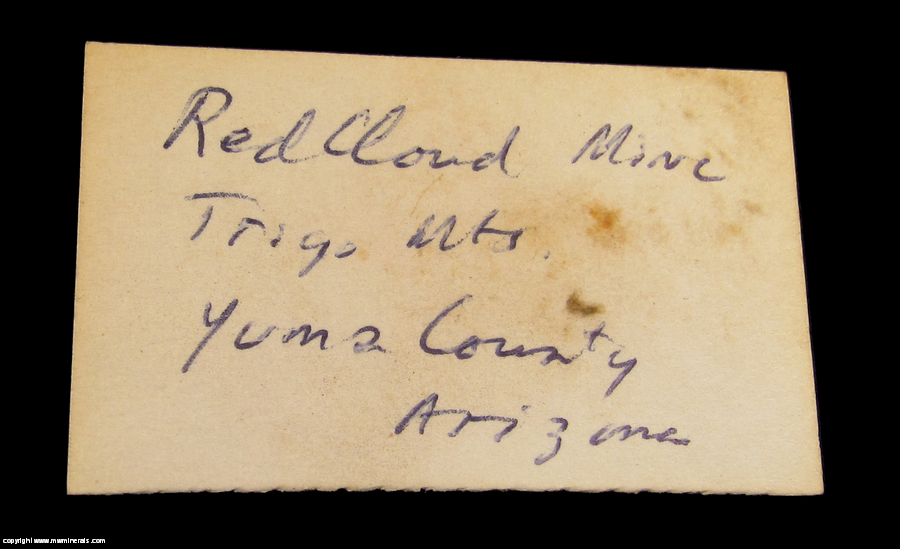 Red Cloud Mine
Trigo Mts.
Yuma County
Arizona
copyright www.mwminerals.com